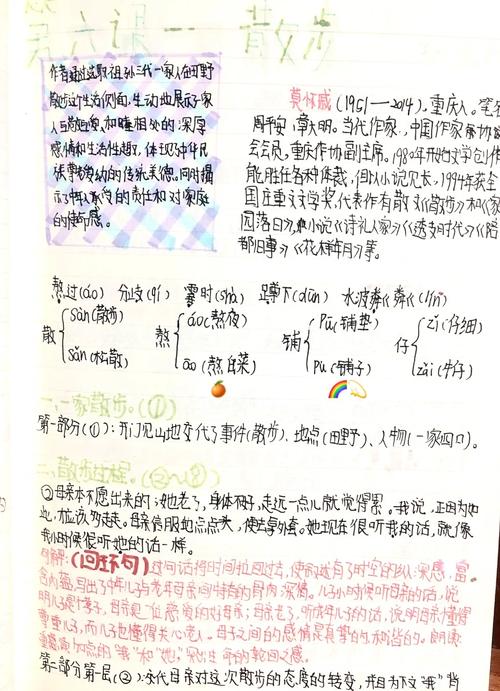 第六课 — 散步
作者通过选取祖孙三代一家人在田野
散步这个生活侧面,生动地展示了家
人互敬互爱,和睦相处的深厚
感情和生活性趣,体现了中华民
族尊老爱幼的传统美德。同时揭
示了中年人承受的责任和对家庭
的使命感。
莫怀戚(1951—2014),重庆人。笔名
周平安,章大明。当代作家,中国作家协
会会员,重庆作协副主席。1980年开始文学创作
能胜任各种体裁,但以小说见长,1994年获全
国庄重文文学奖,代表作有散文《散步》和《家
园落日》,小说《诗礼人家》《透支时代》《陪
都旧事》《花样年月》等。
熬过(áo) 分歧(qí) 霎时(shà) 蹲下(dūn) 水波粼粼(lín)
散 sàn(散步) 熬 áo(熬夜) 铺 pū(铺垫) 仔 zǐ(仔细)
sǎn(松散) āo(熬白菜) pù(铺子) zǎi(牛仔)
一、一家散步。(①)
第一部分(①):开门见山地交代了事件(散步)、地点(田野)、人物(一家四口)。
二、散步过程。(②~⑧)
②母亲本不愿出来的;她老了,身体不好,走远一点儿就觉得累。我说,正因为如
此,才应该多走走。母亲信服地点点头,便去拿外套。她现在很听我的话,就像
我小时候很听她的话一样。
(回环句)这句话将时间拉回过去,使叙述有了时空的纵深感,富
含内蕴,写出了中年儿子与老年母亲间特有的骨肉深情。儿小时候听母亲的话,说
明儿子很孝,母亲是一位慈爱的好母亲;母亲老了,听成年儿子的话,说明母亲懂得
尊重儿子,而儿子也懂得关心老人。母子之间的感情是真挚的和谐的。朗读
重音加点的"我"和"她",突出生命的轮回之感。
第二部分第一层(②):交代母亲对这次散步的态度的转变,并且为下文"我"背